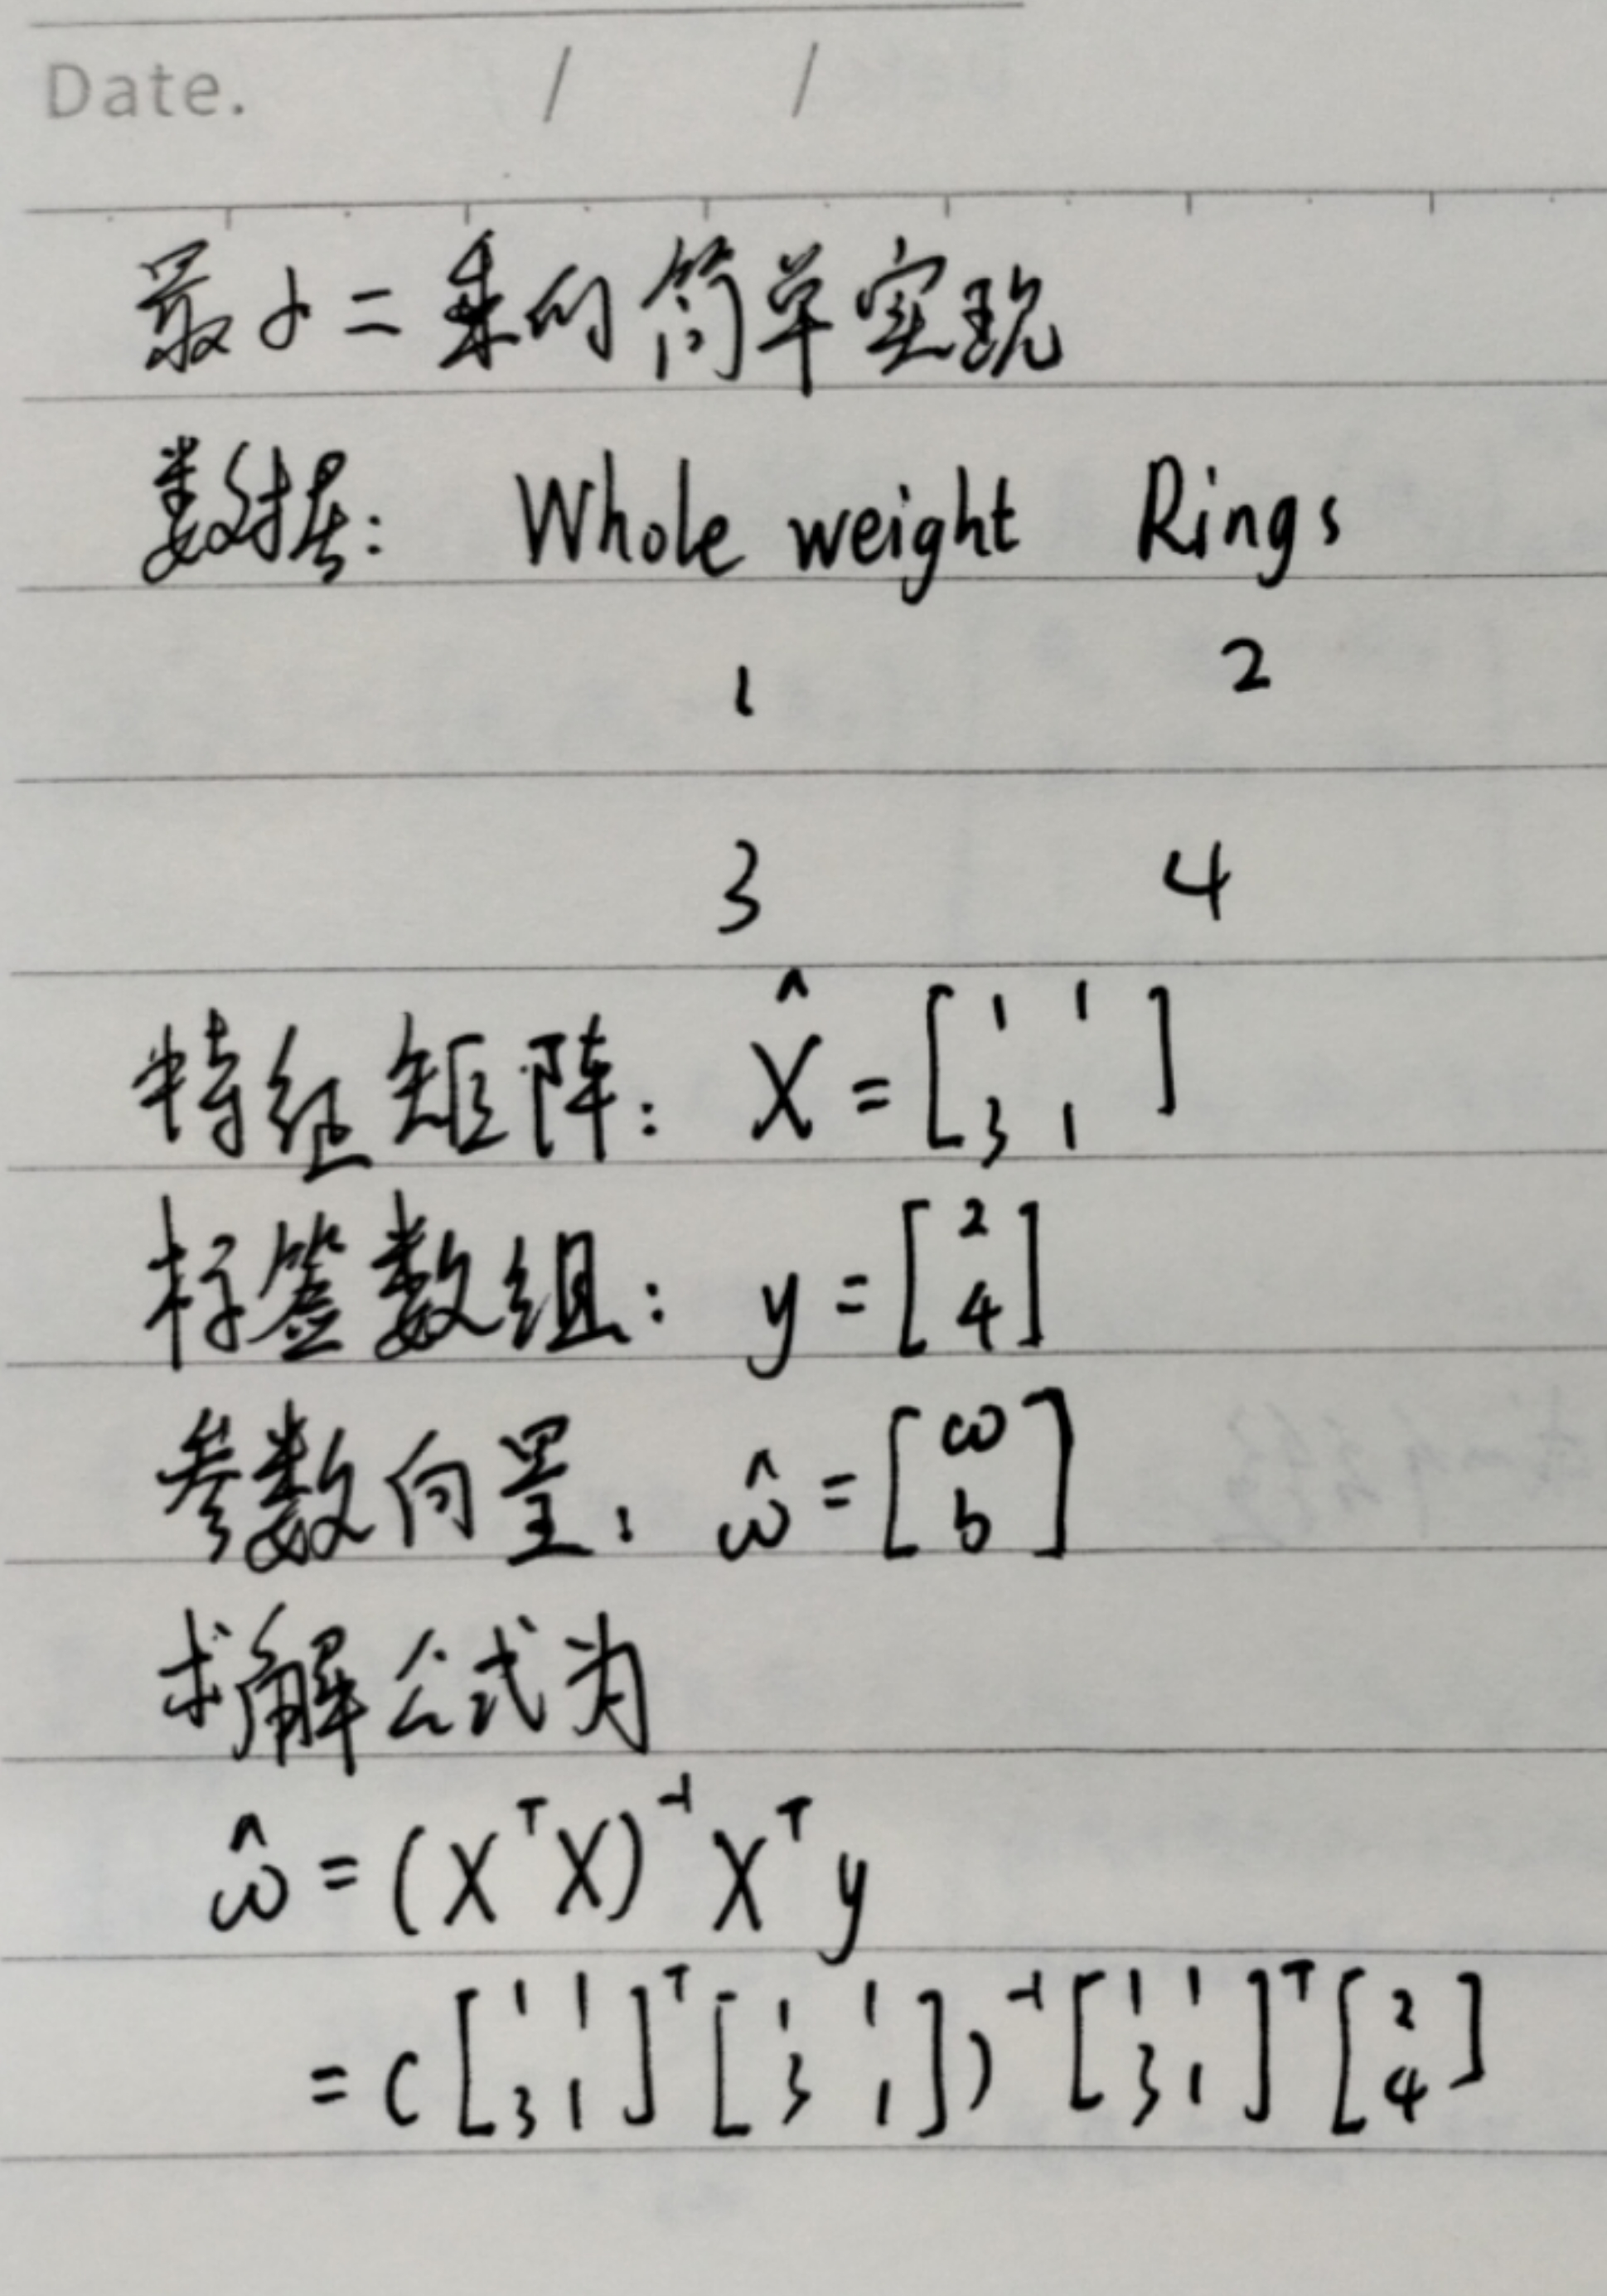 Date. / /
最小二乘的简单实现
数据: Whole weight Rings
1 2
3 4
特征矩阵: X̂ = [1 1; 3 1]
标签数组: y = [2; 4]
参数向量: ω̂ = [ω; b]
求解公式为
ω̂ = (XᵀX)⁻¹Xᵀy
= ([1 1; 3 1]ᵀ[1 1; 3 1])⁻¹[1 1; 3 1]ᵀ[2; 4]